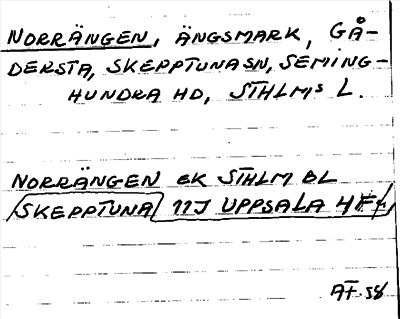 NORRÄNGEN, ÄNGSMARK, GÅ-
DERSTA, SKEPPTUNA SN, SEMING-
HUNDRA HD, STHLMS L.
NORRÄNGEN EK STHLM BL
SKEPPTUNA 11J UPPSALA 4Ff
AF 58